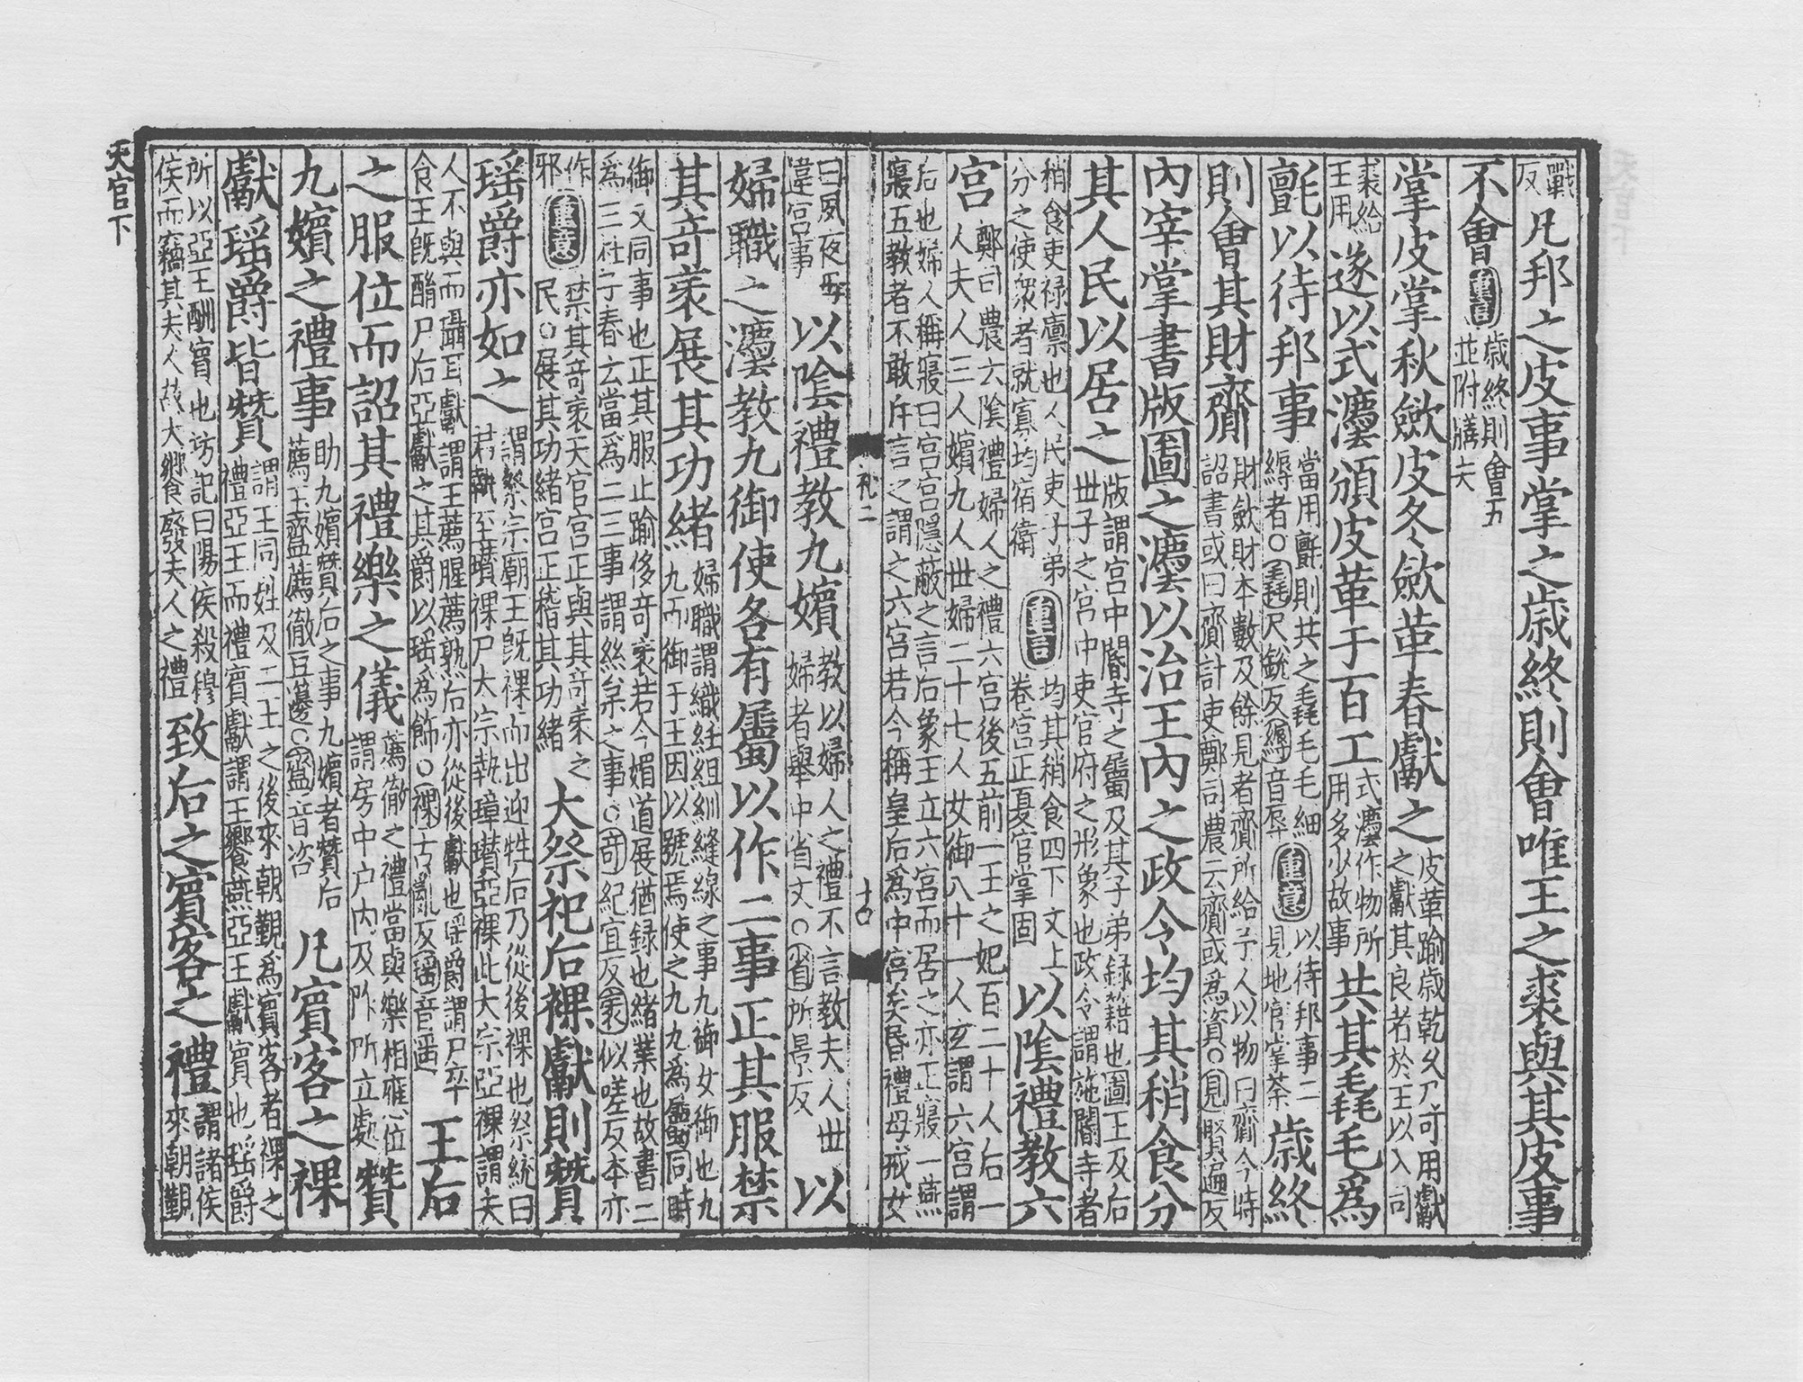 戰反凡邦之皮事掌之歲終則會唯王之裘與其皮事
不會重言歲終則會五並附膳夫
掌皮掌秋斂皮冬斂革春獻之皮革踰歲乾久乃可用獻之獻其良者於王以入司
裘給王用遂以式灋頒皮革于百工式灋作物所用多少故事共其毳毛爲
氈以待邦事當用氈則共之毳毛毛細縟者○毳尺銳反縟音辱重意以待邦事二見地官掌荼歲終
則會其財齎財斂財本數及餘見者齎所給予人以物曰齎今時詔書或曰齎計吏鄭司農云齎或爲資○見賢遍反
內宰掌書版圖之灋以治王內之政令均其稍食分
其人民以居之版謂宮中閽寺之屬及其子弟錄籍也圖王及后世子之宮中吏官府之形象也政令謂施閽寺者
稍食吏祿廩也人民吏子弟分之使衆者就寡均宿衛重言均其稍食四下文上卷宮正夏官掌固以隂禮教六
宮鄭司農云隂禮婦人之禮六宮後五前一王之妃百二十人后一人夫人三人嬪九人世婦二十七人女御八十一人玄謂六宮謂
后也婦人稱寢曰宮宮隱蔽之言后象王立六宮而居之亦正寢一燕寢五教者不敢斥言之謂之六宮若今稱皇后爲中宮矣昏禮母戒女
曰夙夜毋違宮事以隂禮教九嬪教以婦人之禮不言教夫人世婦者舉中省文○省所景反以
婦職之灋教九御使各有屬以作二事正其服禁
其奇衺展其功緒婦職謂織紝組紃縫線之事九御女御也九九而御于王因以號焉使之九九爲屬同時
御又同事也正其服止踰侈奇衺若今媚道展猶錄也緒業也故書二爲三杜子春云當爲二二事謂絲枲之事○奇紀宜反衺似嗟反本亦
作邪重意禁其奇衺天官宮正與其奇衺之民○展其功緒宮正稽其功緒大祭祀后祼獻則贊
瑤爵亦如之謂祭宗廟王旣祼而出迎牲后乃從後祼也祭統曰君執圭瓚祼尸大宗執璋瓚亞祼此大宗亞祼謂夫
人不與而攝耳獻謂王薦腥薦孰后亦從後獻也瑤爵謂尸卒食王旣酳尸后亞獻之其爵以瑤爲飾○祼古亂反瑤音遥王后
之服位而詔其禮樂之儀薦徹之禮當與樂相應位謂房中户内及阼所立處贊
九嬪之禮事助九嬪贊后之事九嬪者贊后薦玉齍薦徹豆籩○齍音咨凡賓客之祼
獻瑤爵皆贊謂王同姓及二王之後來朝覲爲賓客者祼之禮亞王而禮賓獻謂王饗燕亞王獻賓也瑤爵
所以亞王酬賓也坊記曰陽侯殺穆侯而竊其夫人故大饗廢夫人之禮致后之賓客之禮謂諸侯來朝覲
天官下
礼二
十